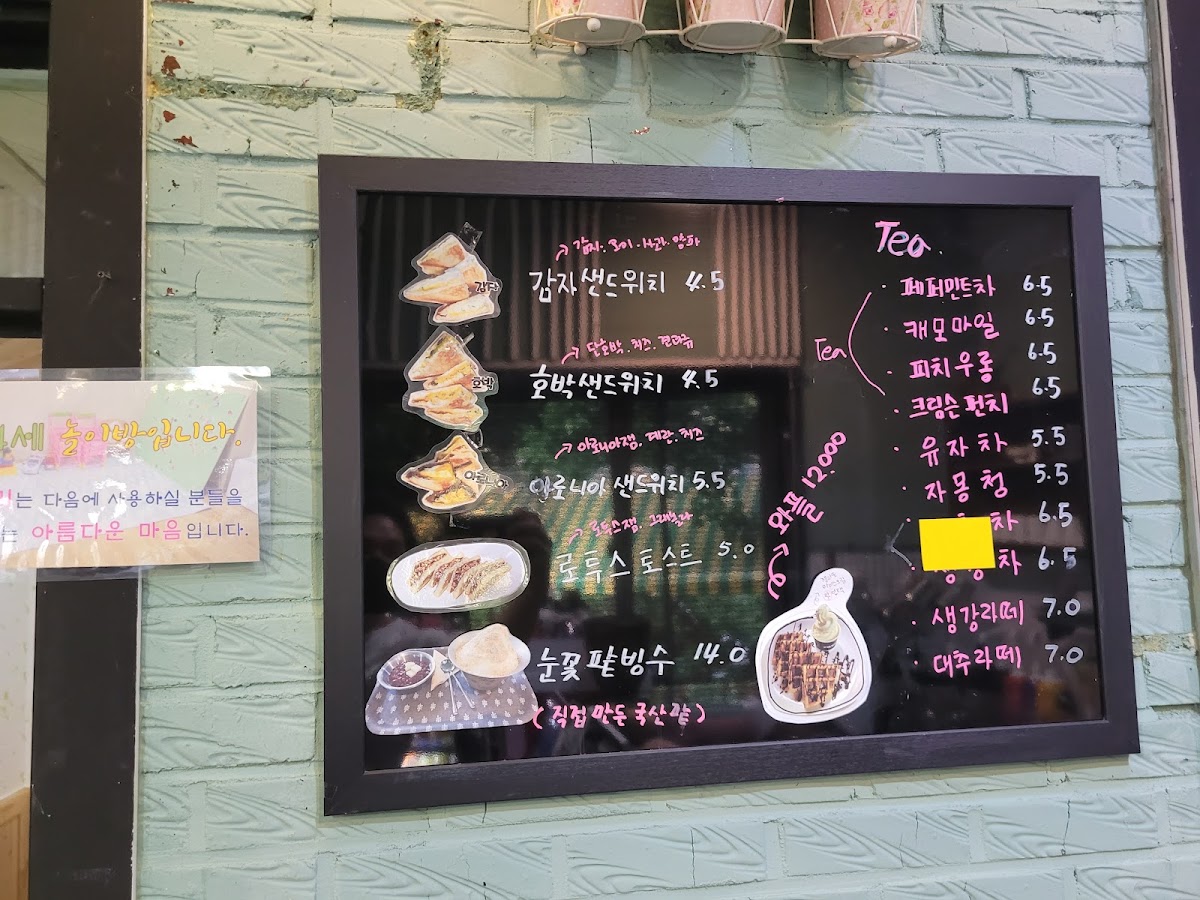 감자
감자샌드위치 4.5
호박
단호박.치즈.
호박샌드위치 4.5
아로니아잼.계란.치즈
아로니아 샌드위치 5.5
로투스잼.
로투스 토스트 5.0
눈꽃 팥빙수 14.0
(직접 만든 국산팥)
와플 12.000
Tea
Tea
페퍼민트차 6.5
캐모마일 6.5
피치우롱 6.5
크림슨펀치 6.5
유자차 5.5
자몽청 5.5
차 6.5
차 6.5
생강라떼 7.0
대추라떼 7.0
세 놀이방입니다.
는 다음에 사용하실 분들을
는 아름다운 마음입니다.